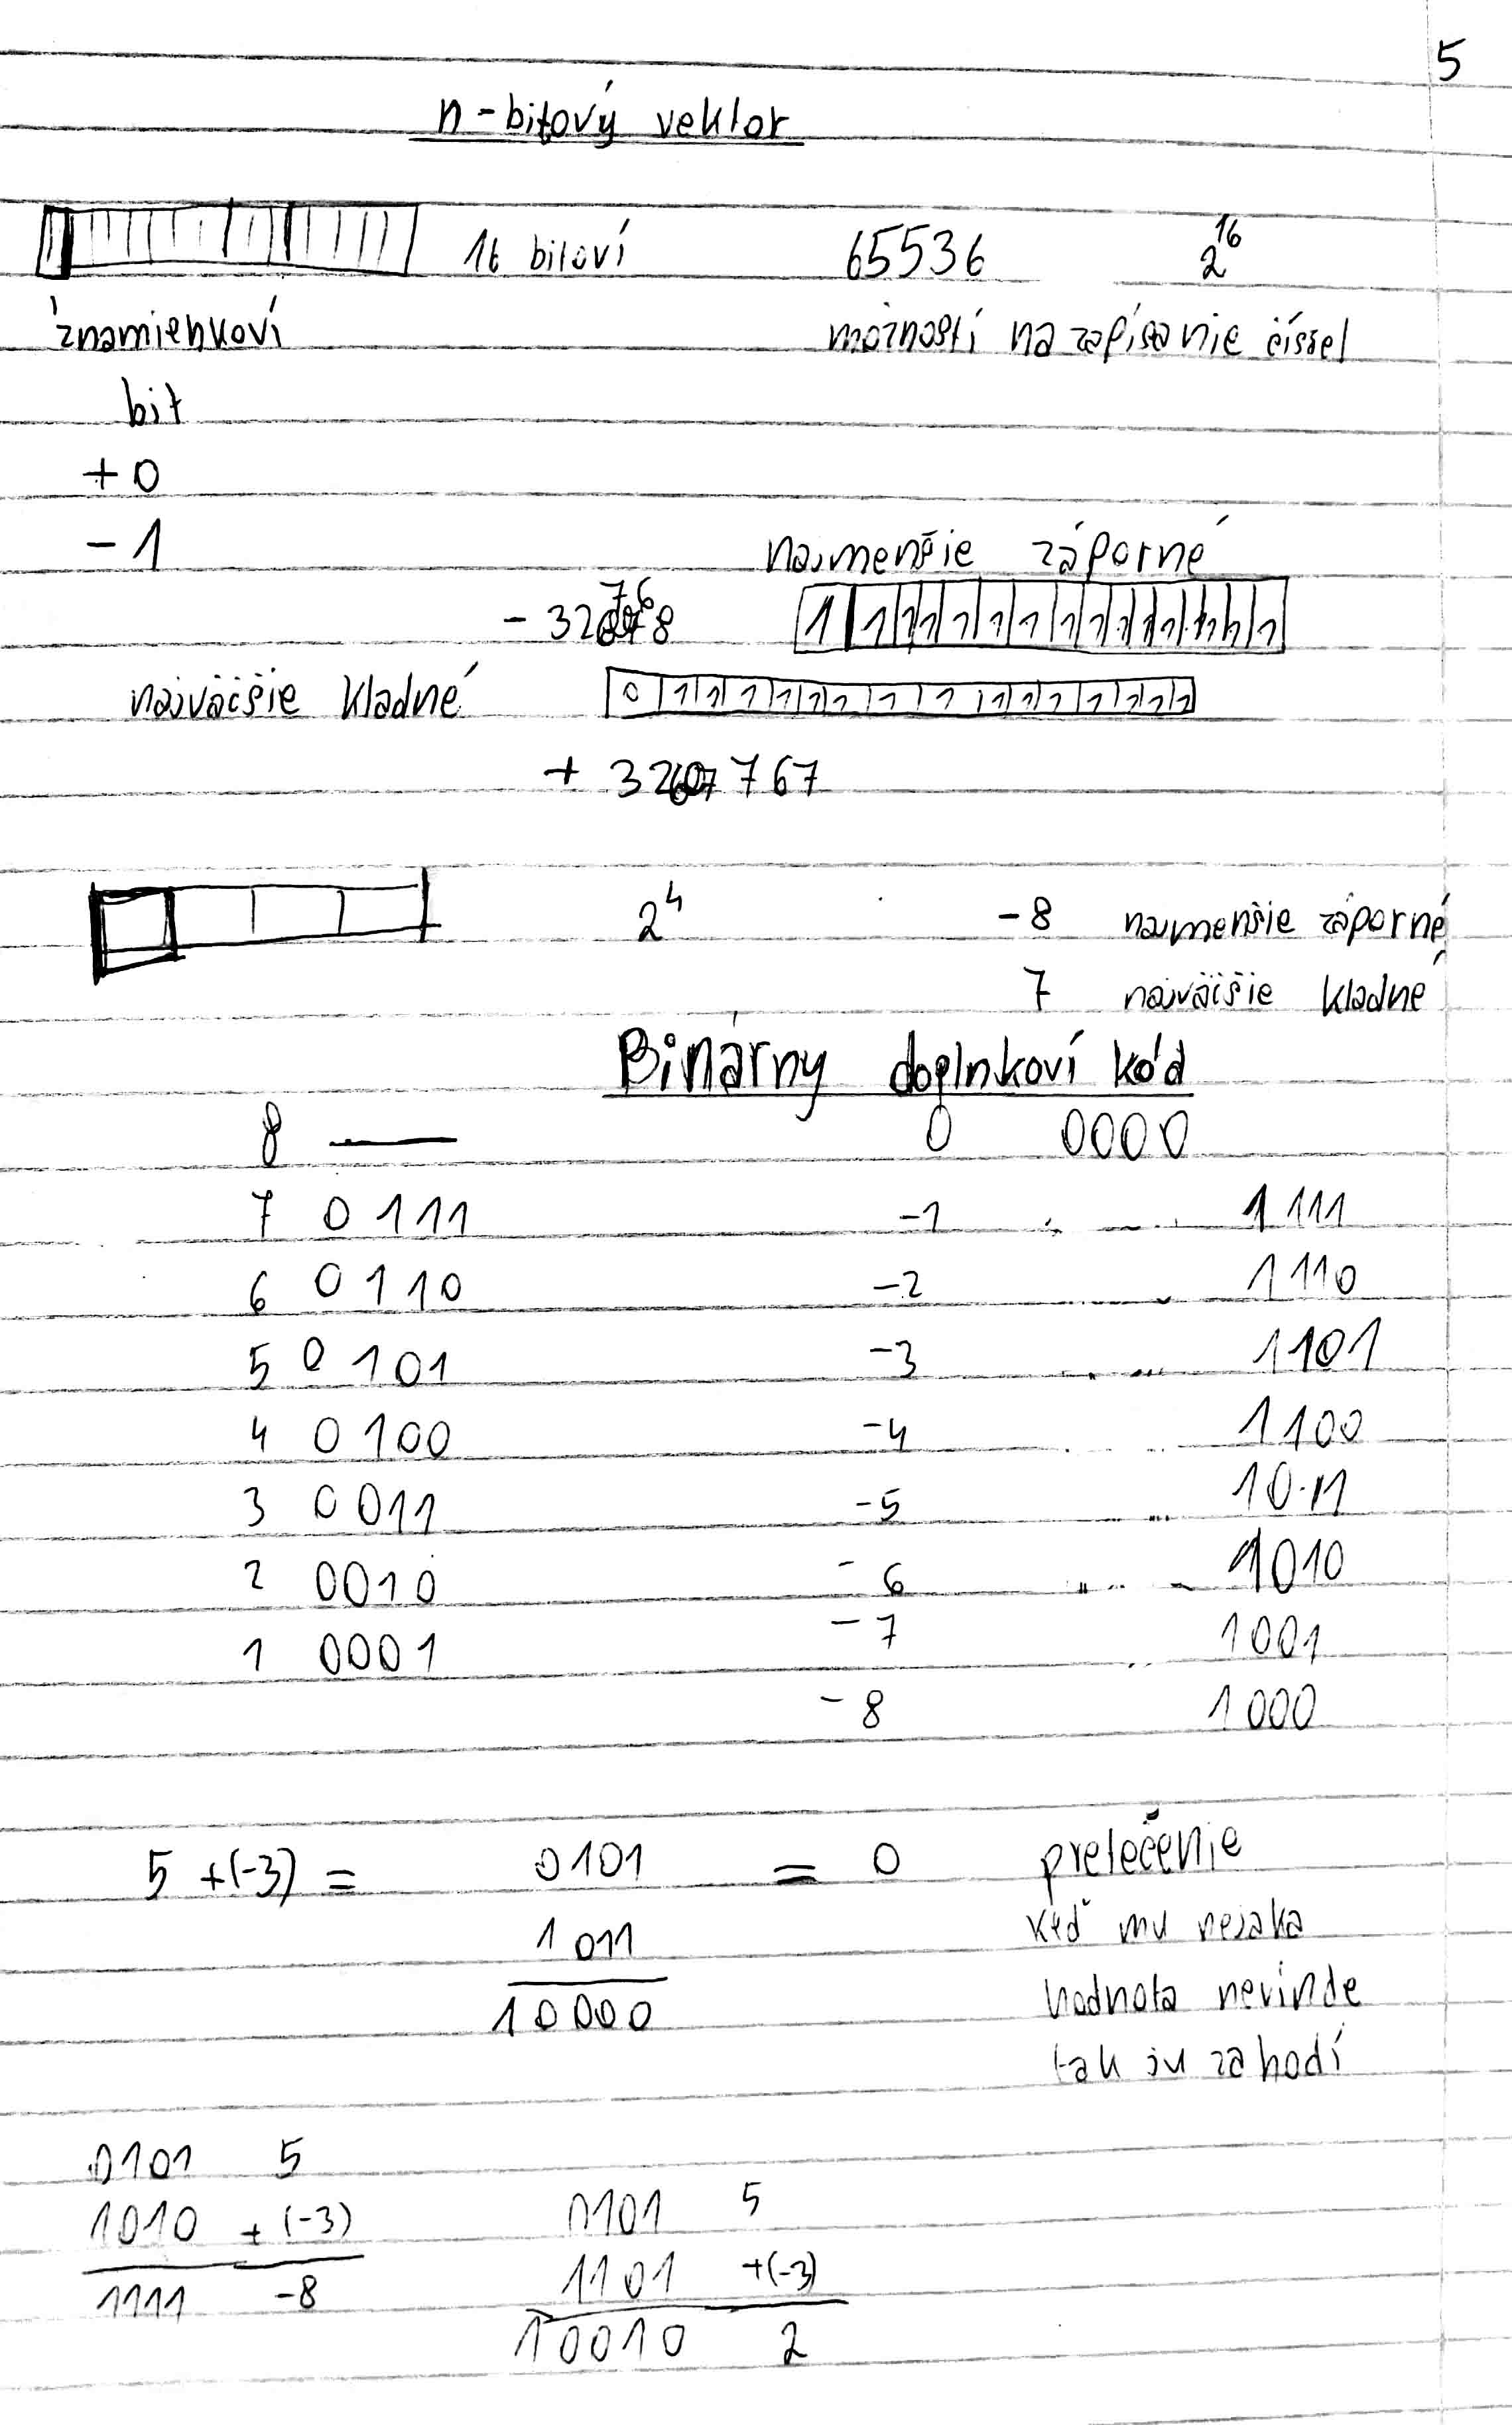 5
n-bitový vektor
16 bitoví 65536 2^16
znamienkoví možností na zapísanie číssel
bit
+0
-1
najmenšie záporné
-32768 1 1 1 1 1 1 1 1 1 1 1 1 1 1 1 1
najväčšie kladné 0 1 1 1 1 1 1 1 1 1 1 1 1 1 1 1
+ 32 767
2^4 -8 najmenšie záporné
7 najväčšie kladné
Binárny doplnkoví kód
8 — 0 0000
7 0111 -1 1111
6 0110 -2 1110
5 0101 -3 1101
4 0100 -4 1100
3 0011 -5 1011
2 0010 -6 1010
1 0001 -7 1001
-8 1000
5 +(-3) = 0101 = 0 pretečenie
1011 keď mu nejaka
10000 hodnota nevinde
tak ju zahodí
0101 5
1010 +(-3)
1111 -8
0101 5
1101 +(-3)
10010 2